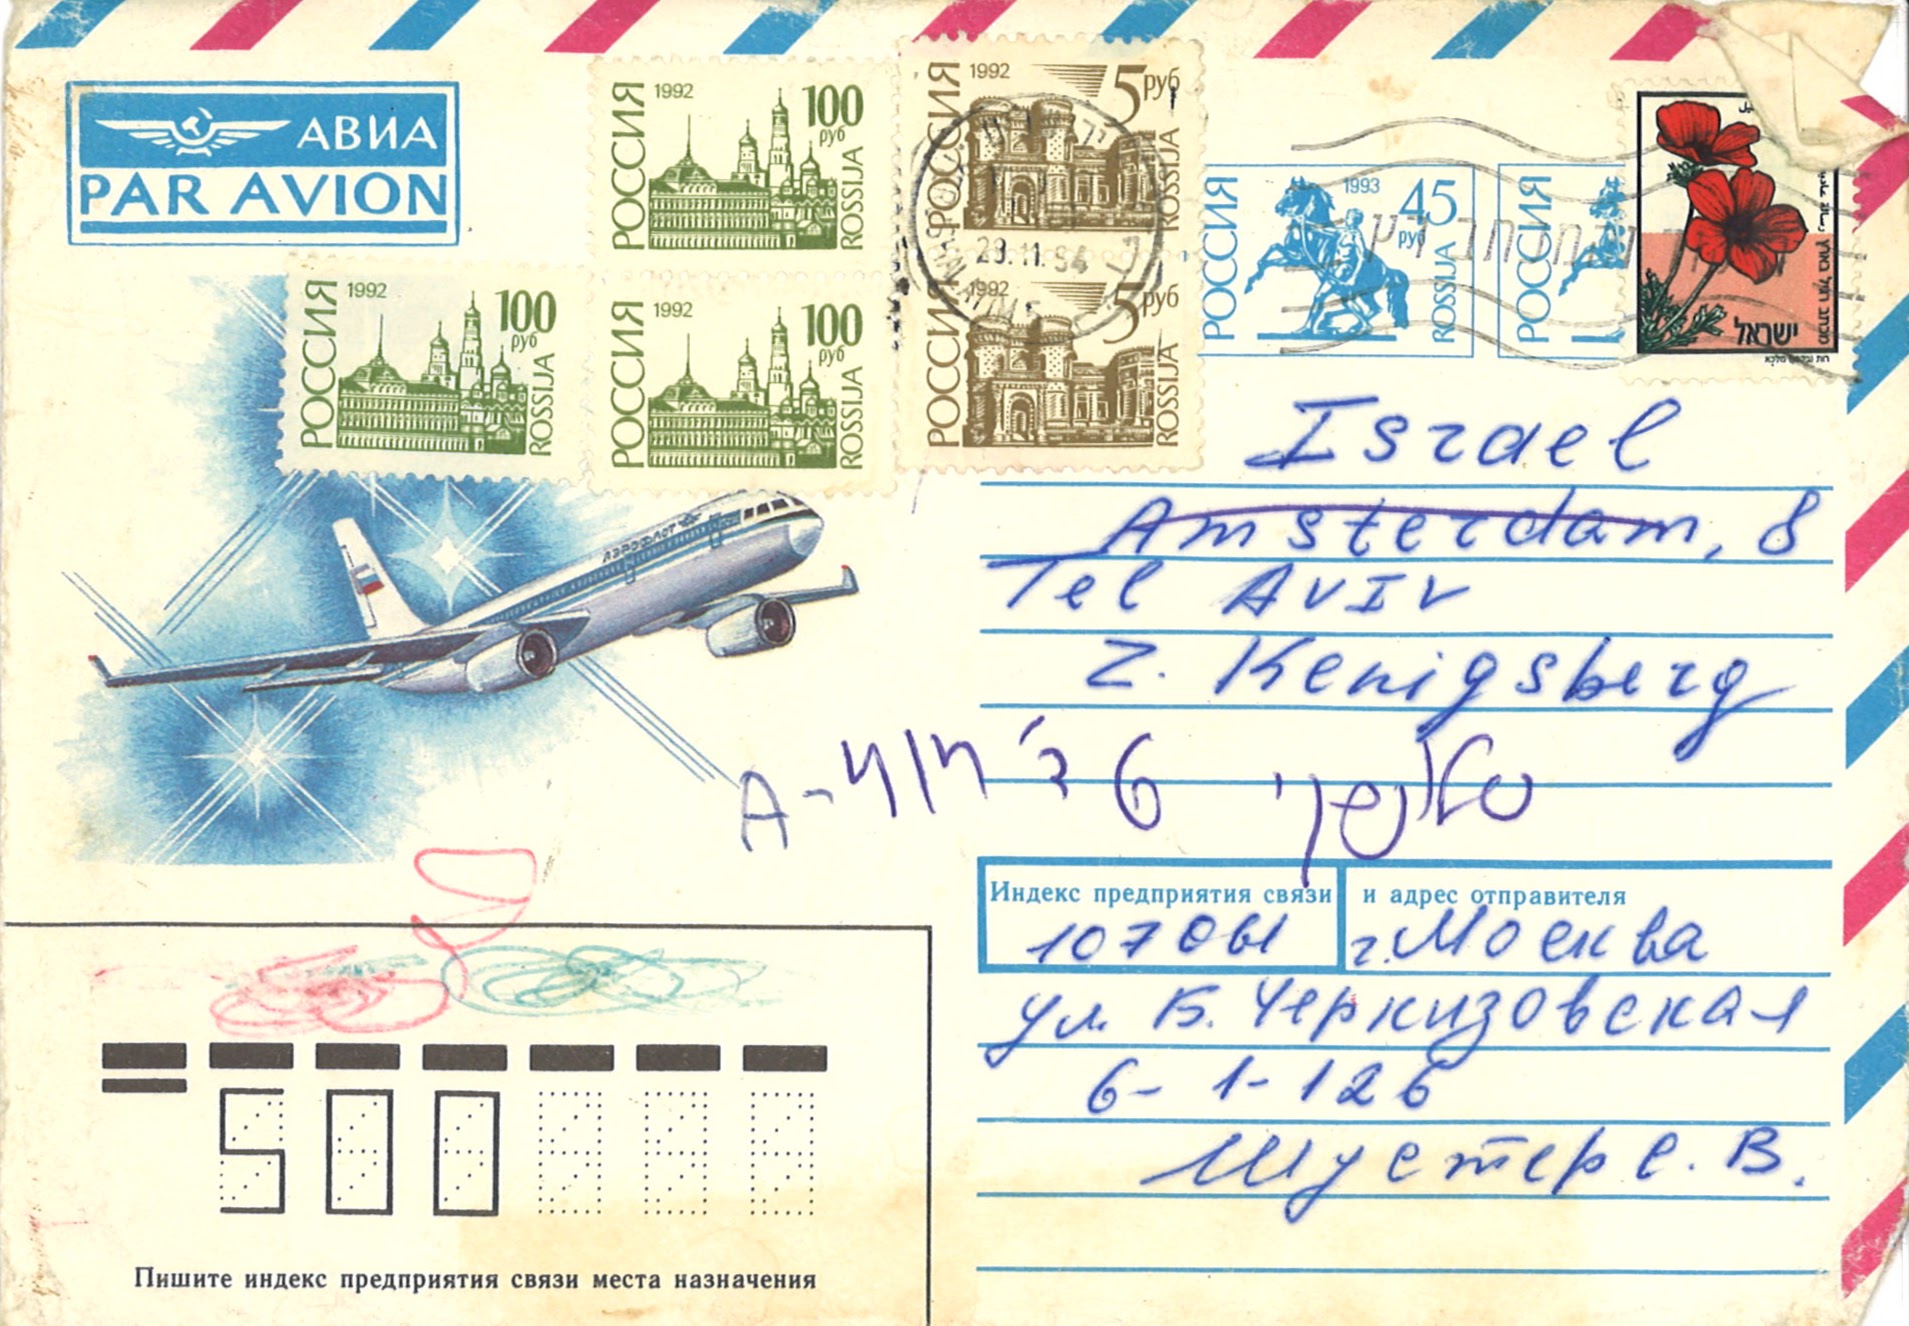 АВИА
PAR AVION
РОССИЯ 1992 100 руб ROSSIJA
РОССИЯ 1992 5 руб ROSSIJA
РОССИЯ 1992 100 руб ROSSIJA
РОССИЯ 1992 100 руб ROSSIJA
РОССИЯ 1992 5 руб ROSSIJA
29.11.94
РОССИЯ 1993 45 руб ROSSIJA
РОССИЯ
ישראל
АЭРОФЛОТ
Israel
Amsterdam, 8
Tel AVIV
Z. Kenigsberg
Индекс предприятия связи и адрес отправителя
107061 г. Москва
ул. Б. Черкизовская
6-1-126
Шустер Е. В.
500
Пишите индекс предприятия связи места назначения